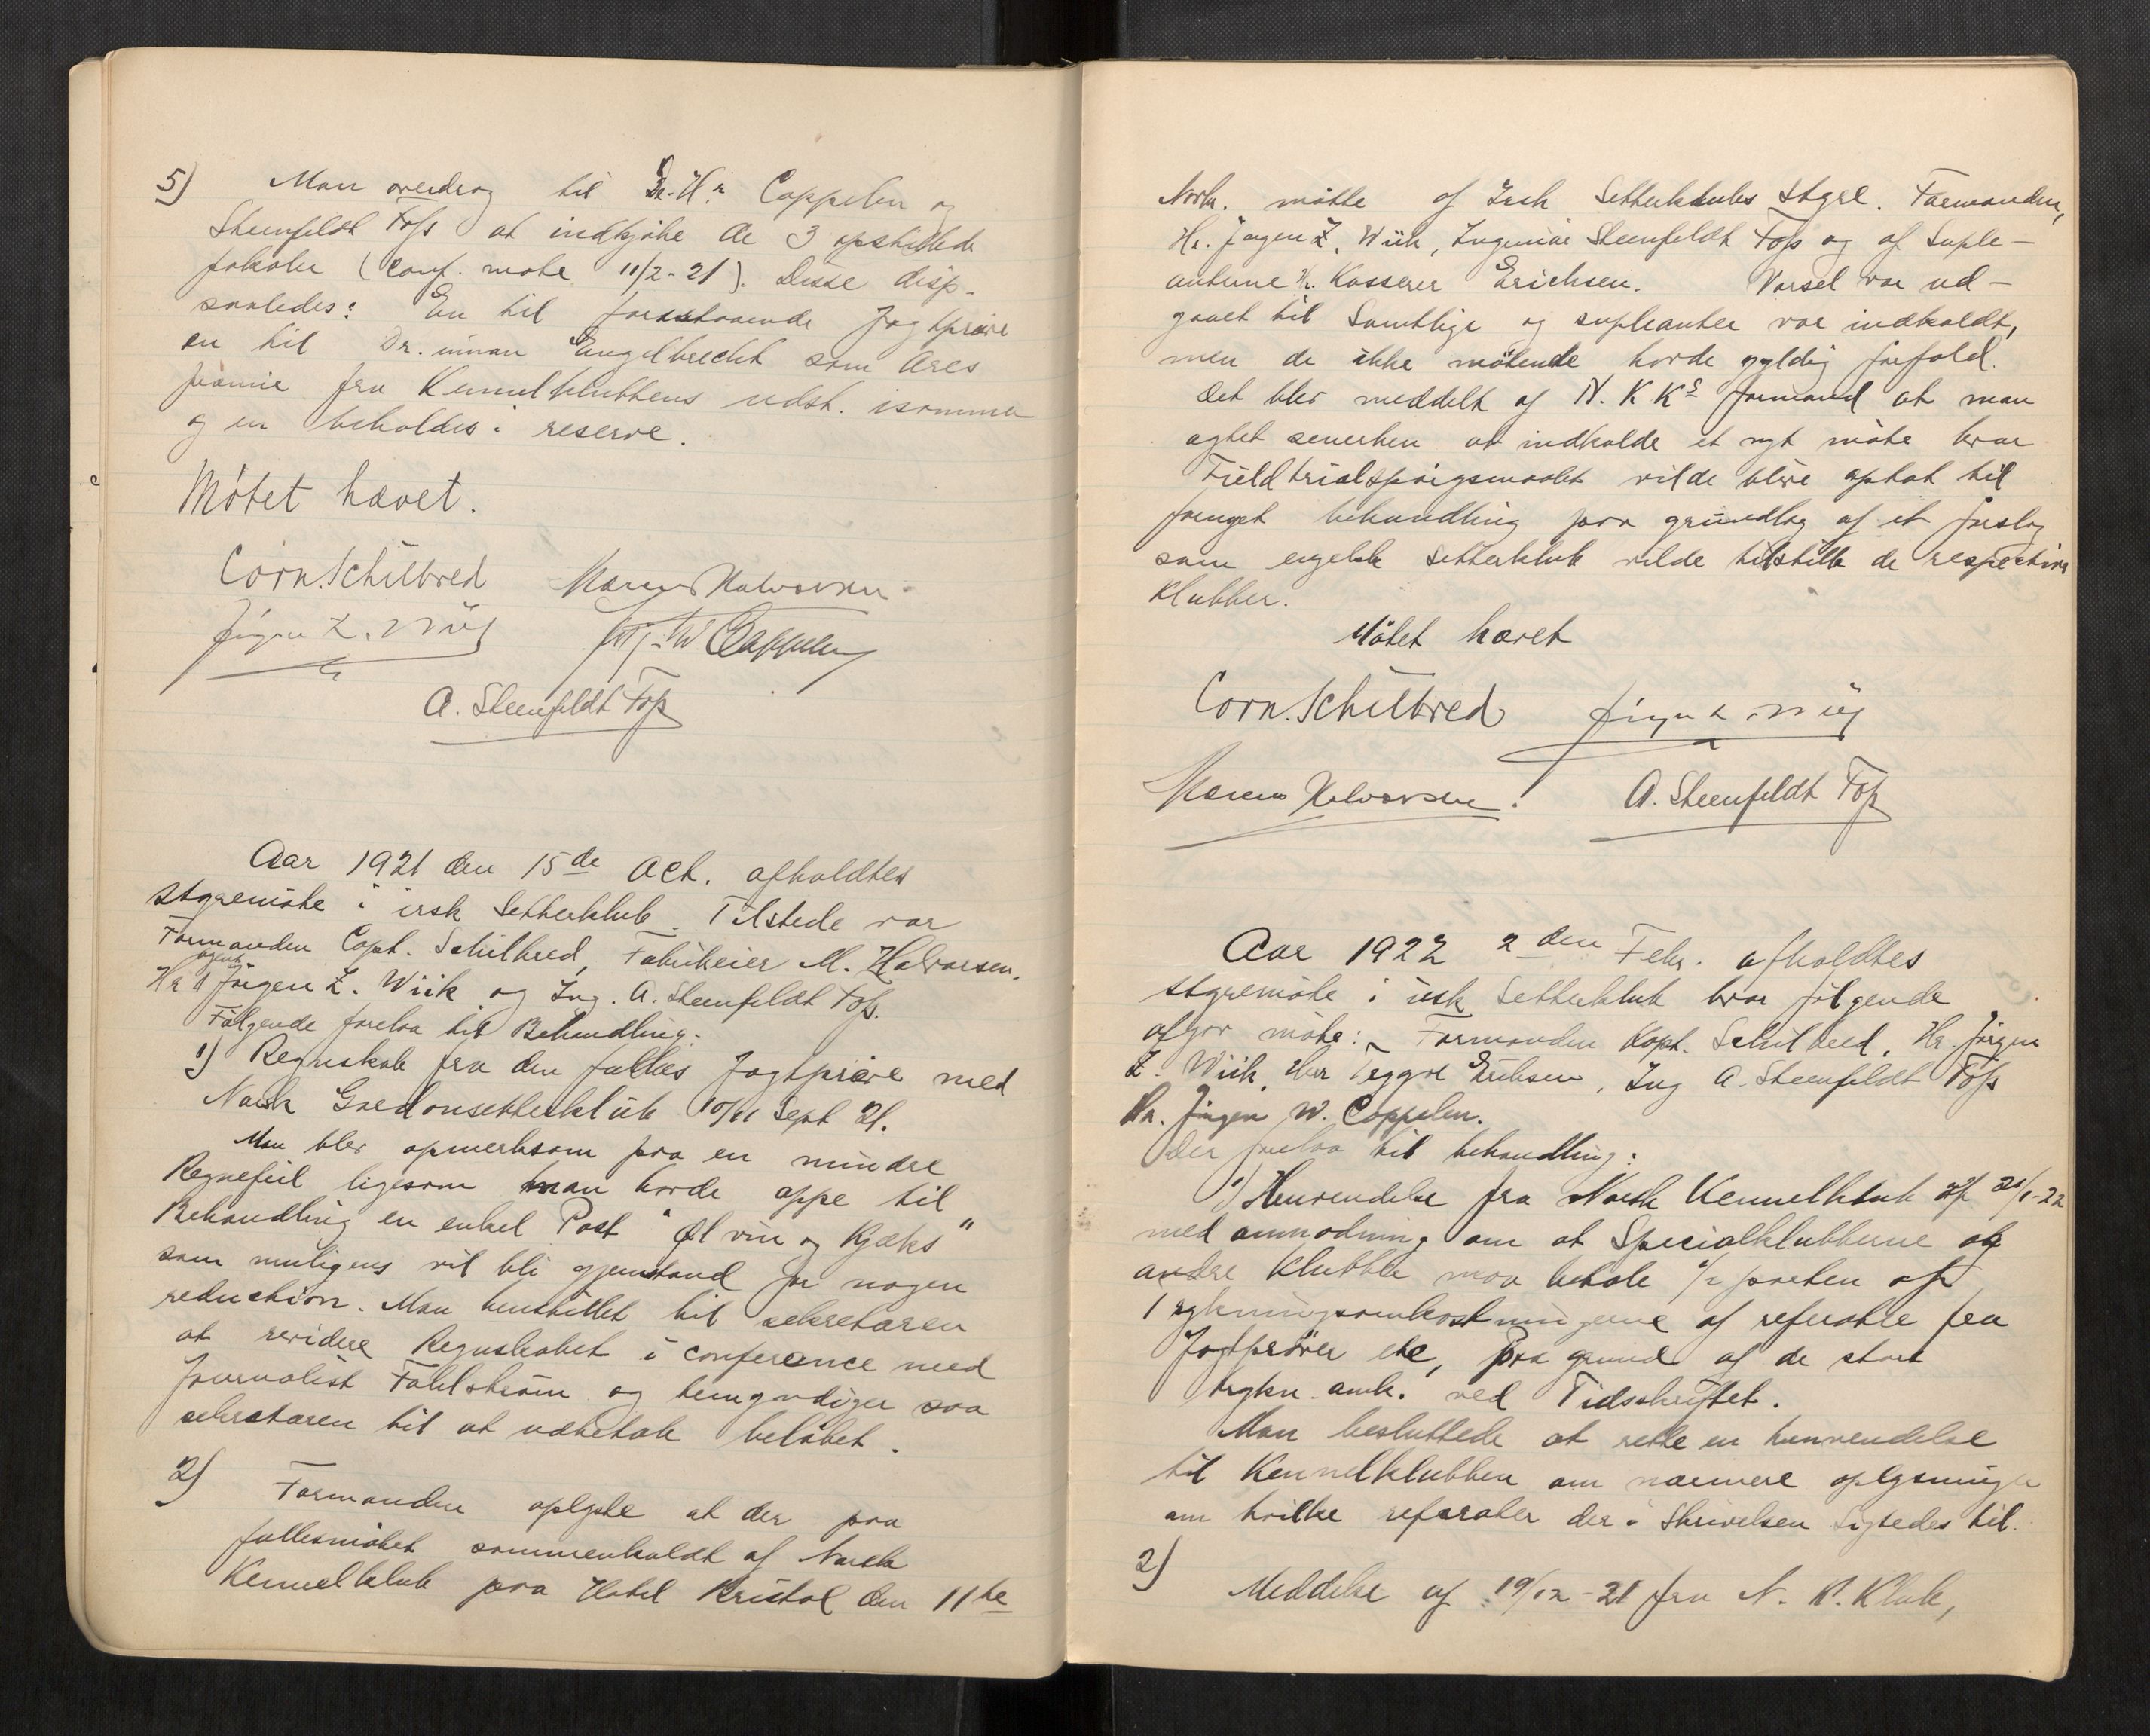 5) Man overdrog til Dr. Hr. Cappelen og
Steenfeldt Foss at indkjøbe de 3 opstillede
pokaler (Conf. møte 11/2-21). Disse disp.
saaledes: En til forestaaende Jagtprøve
en til Dr. Engelbrecht som Æres
præmie fra Kennelklubbens udst. isommer
og en beholdes i reserve.
Møtet hævet.
Corn. Schilbred Marius Halvorsen
Jørgen Z. Wiig Jørg. W Cappelen
A. Steenfeldt Foss
Aar 1921 den 15de Oct. afholdtes
styremøte i irsk Setterklub. Tilstede var
Formanden Capt. Schilbred, Fabrikeier M. Halvorsen.
Hr agent Jørgen Z. Wiik og Ing. A. Steenfeldt Foss.
Følgende forelaa til Behandling:
1) Regnskab fra den fælles Jagtprøve med
Norsk Gordonsetterklub 10/11 Sept 21.
Man blev opmerksom paa en mindre
Regnefeil ligesom man havde oppe til
Behandling en enkel Post "Øl vin og Kjæks"
som muligens vil bli gjenstand for nogen
reduction. Man henstillet til sekretæren
at revidere Regnskabet i conferance med
Journalist Fahlstrøm og bemyndiger saa
sekretæren til at udbetale beløbet.
2) Formanden oplyste at der paa
fællesmøtet sammenkaldt af Norsk
Kennelklub paa Hotel Bristol den 11te
Novbr. møtte af Irsk Setterklubs Styre. Formanden,
Hr. Jørgen Z. Wiik, Ingeniør Steenfeldt Foss og af Suple-
anterne Hr. Kasserer Erichsen. Varsel var ud-
gaaet til Samtlige og supleanter var indkaldt,
men de ikke møtende havde gyldig forfald.
Det blev meddelt af N. K Ks formand at man
agtet senerhen at indkalde et nyt møte hvor
Fieldtrialspørgsmaalet vilde blive optat til
fornyet behandling paa grundlag af et forslag
som engelsk setterklub vilde tilstille de respective
Klubber.
Møtet hævet
Corn. Schilbred Jørgen Z. Wiig
Marius Halvorsen. A. Steenfeldt Foss
Aar 1922 2den Febr. afholdtes
styremøte i irsk Setterklub hvor følgende
afgav møte: Formanden Kapt. Schilbred, Hr. Jørgen
Z. Wiik, Herr Tryggve Erichsen, Ing A. Steenfeldt Foss
Hr. Jørgen W. Cappelen.
Der forelaa til behandling:
1) Henvendelse fra Norsk Kennelklub af 21/1-22
med anmodning om at Specialklubberne og
andre Klubber maa betale 1/2 parten af
Trykningsomkostningerne af referater fra
Jagtprøver etc, paa grund af de store
trykn. omk. ved Tidsskriftet.
Man besluttede at rette en henvendelse
til Kennelklubben om nærmere oplysninger
om hvilke referater der i Skrivelsen sigtedes til.
2) Meddelse af 19/12-21 fra N. K. Klub,